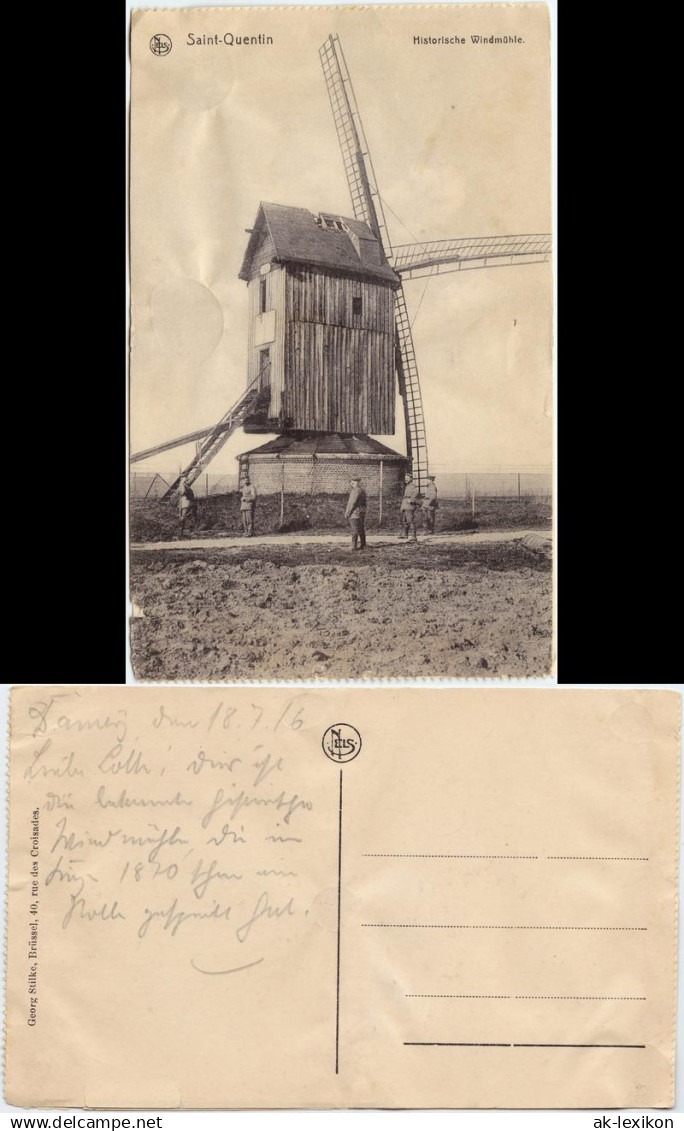 NELS
Saint-Quentin
Historische Windmühle.
Damery, den 18.7.16
Liebe Lotte! Dies ist
die bekannte historische
Windmühle, die im
Kriege 1870 schon eine
Rolle gespielt hat.
NELS
Georg Stilke, Brüssel, 40, rue des Croisades.
ak-ansichtskarten.de / ak-lexikon